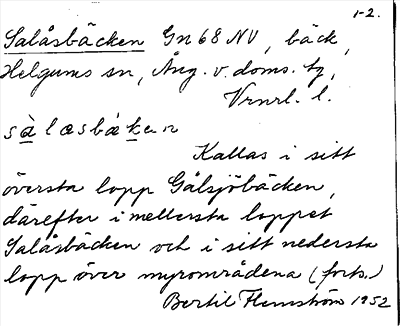 1-2.
Salåsbäcken Gn 68 NV, bäck,
Helgums sn, Ång. v. doms. tg,
Vrnrl. l.
sàlæsbàken
Kallas i sitt
översta lopp Gålsjöbäcken,
därefter i mellersta loppet
Salåsbäcken och i sitt nedersta
lopp över myrområdena (forts.)
Bertil Flemström 1952